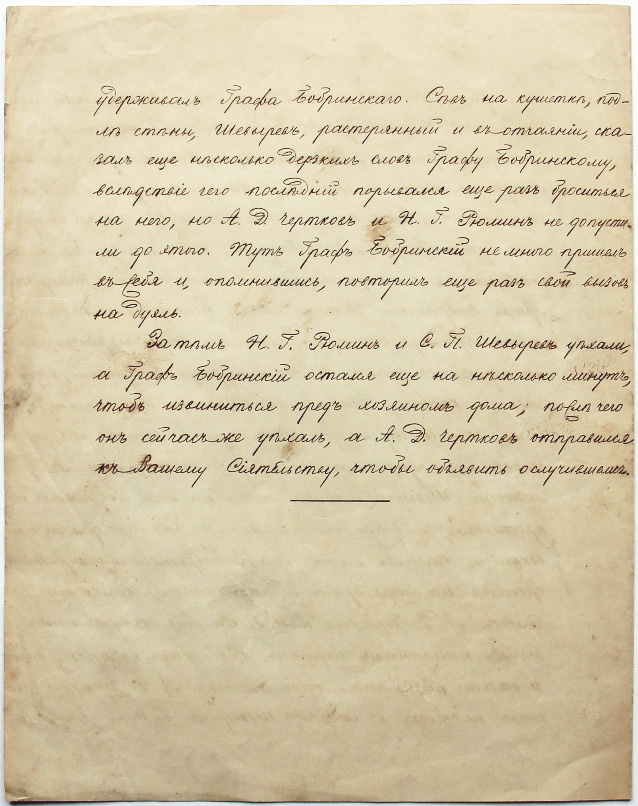 удерживалъ Графа Бобринскаго. Сѣвъ на кушетки, под-
лѣ стѣны, Шевыревъ, растерянный и въ отчаяніи, ска-
залъ еще нѣсколько дерзкихъ словъ Графу Бобринскому,
вслѣдствіе чего послѣдній порывался еще разъ броситься
на него, но А. Д. Чертковъ и Н. Г. Рюминъ не допусти-
ли до этого. Тутъ Графъ Бобринскій немного пришелъ
въ себя и, опомнившись, повторилъ еще разъ свой вызовъ
на дуэль.
За тѣмъ Н. Г. Рюминъ и С. П. Шевыревъ уѣхали,
а Графъ Бобринскій остался еще на нѣсколько минутъ,
чтобъ извиниться предъ хозяиномъ дома; послѣ чего
онъ сейчасъ же уѣхалъ, а А. Д. Чертковъ отправился
къ Вашему Сіятельству, чтобы объявить о случившемся.